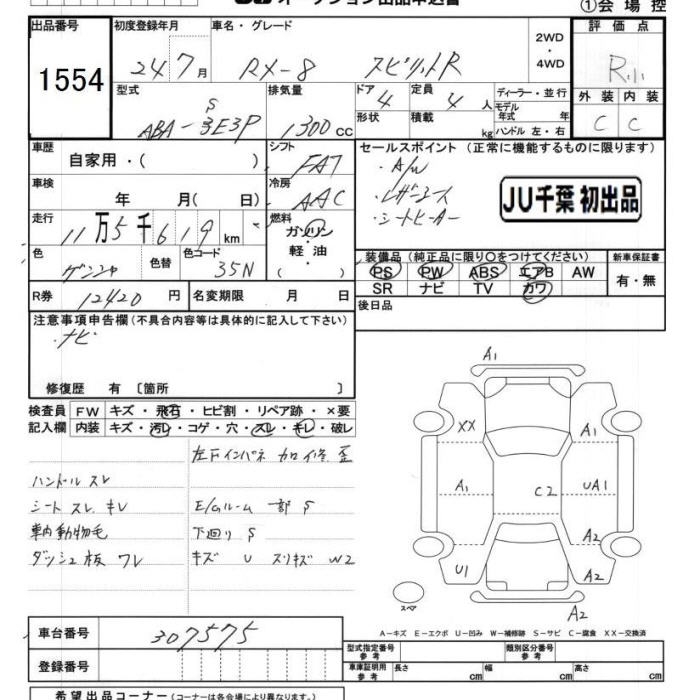 オークション出品申込書
①会場控
出品番号 初度登録年月 車名・グレード 2WD・4WD 評価点
1554 24 7月 RX-8 スピリットR R
型式 排気量 ドア 定員 ディーラー・並行 外装 内装
ABA-SE3P 1300 cc 4 4人 モデル年式 年 C C
形状 積載 kg ハンドル 左・右
車歴 自家用・( ) シフト FA7 セールスポイント (正常に機能するものに限ります)
・A/W
・レザーシート
・シートヒーター
JU千葉 初出品
車検 年 月( 日) 冷房 AAC
走行 11万5千619km 燃料 ガソリン 軽・油 ( )
色 ガンコン 色替 色コード 35N
装備品 (純正品に限り〇をつけてください) 新車保証書
PS PW ABS エアB AW 有・無
SR ナビ TV カワ
R券 12420円 名変期限 月 日 後日品
注意事項申告欄 (不具合内容等は具体的に記入して下さい)
・ナビ
修復歴 有 〔箇所 〕
検査員 FW キズ・飛石・ヒビ割・リペア跡・×要
記入欄 内装 キズ・汚レ・コゲ・穴・スレ・キレ・破レ
左Fインパネ 加修 歪
ハンドル スレ
シート スレ キレ E/gルーム 一部 S
車内動物毛 下廻り S
ダッシュ板 ワレ キズ U スリキズ W2
A1
XX A1
A1 C2 UA1
A2
U1 A2
スペア A2
A-キズ E-エクボ U-凹み W-補修跡 S-サビ C-腐食 XX-交換済
車台番号 307575
登録番号
型式指定番号 参考 類別区分番号 参考
車庫証明用 参考 長さ cm 幅 cm 高さ cm
希望出品コーナー (コーナーは各会場により異なります。)